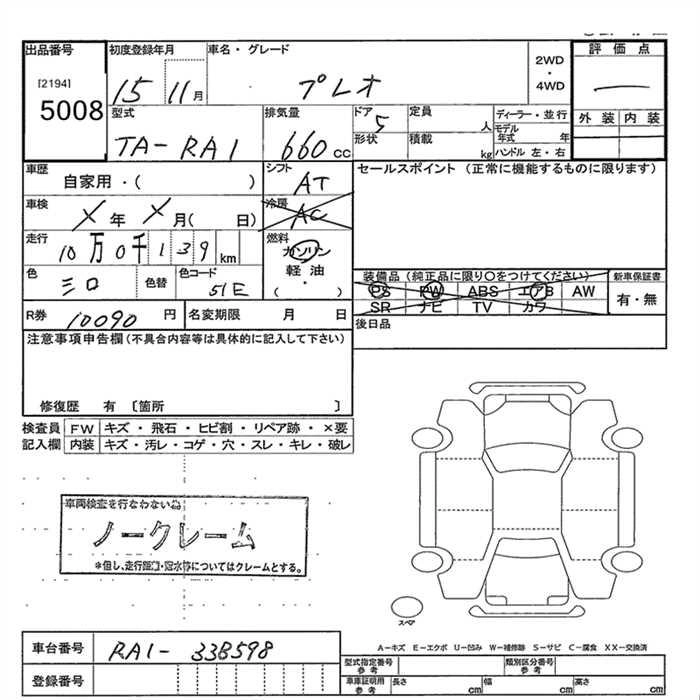 出品番号
[2194]
5008
初度登録年月
15 11月
車名・グレード
プレオ
2WD
・
4WD
評価点
外装 内装
型式
TA-RA1
排気量
660cc
ドア 5
形状
定員 人
積載 kg
ディーラー・並行
モデル年式 年
ハンドル 左・右
車歴
自家用・( )
シフト
AT
セールスポイント (正常に機能するものに限ります)
車検
X年 X月( 日)
冷房
AC
走行
10万0千139km
燃料
ガソリン
軽油
・
( )
色
シロ
色替
色コード
51E
装備品(純正品に限り○をつけてください)
PS PW ABS エアB AW
SR ナビ TV カワ
新車保証書
有・無
R券 10090 円
名変期限 月 日
後日品
注意事項申告欄(不具合内容等は具体的に記入して下さい)
修復歴 有 〔箇所 〕
検査員 FW キズ・飛石・ヒビ割・リペア跡・×要
記入欄 内装 キズ・汚レ・コゲ・穴・スレ・キレ・破レ
車両検査を行なわない為
ノークレーム
*但し、走行距離・冠水等についてはクレームとする。
スペア
A-キズ E-エクボ U-凹み W-補修跡 S-サビ C-腐食 XX-交換済
車台番号 RA1-338598
登録番号
型式指定番号
参考
類別区分番号
参考
車庫証明用
参考
長さ cm 幅 cm 高さ cm